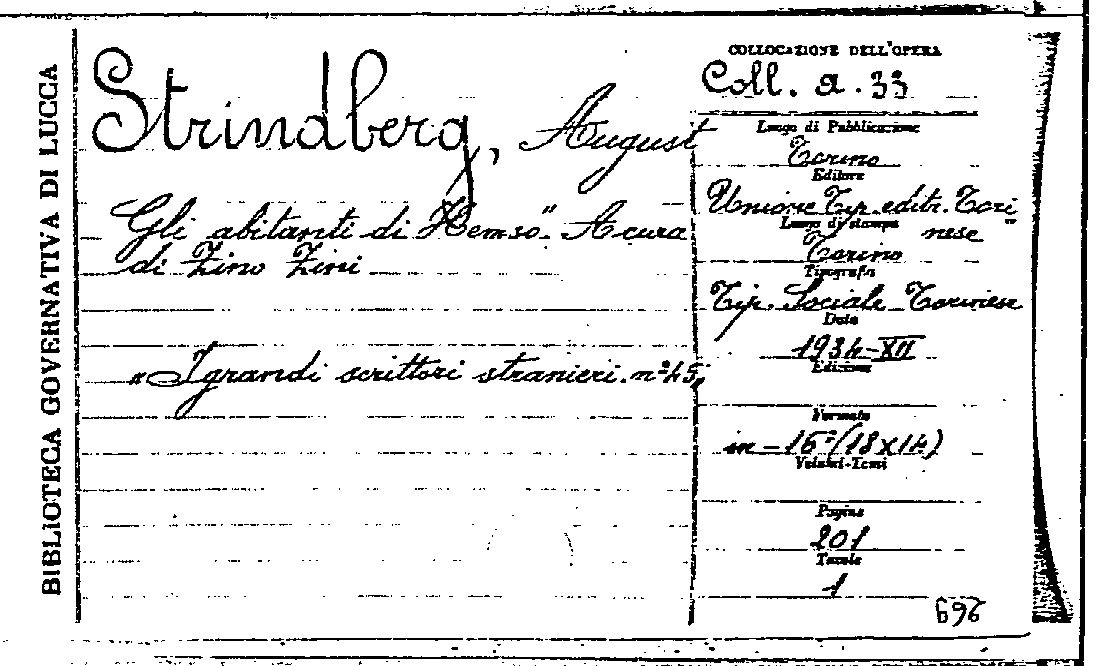 BIBLIOTECA GOVERNATIVA DI LUCCA
Strindberg, August
Gli abitanti di Hemsö. A cura
di Zino Zini
"I grandi scrittori stranieri. n° 45"
COLLOCAZIONE DELL'OPERA
Coll. a. 33
Luogo di Pubblicazione
Torino
Editore
Unione Tip. editr. Tori
nese
Luogo di stampa
Torino
Tipografia
Tip. Sociale Torinese
Data
1934-XII
Edizione
Formato
in-16° (18x14)
Volumi-Tomi
Pagine
201
Tavole
1